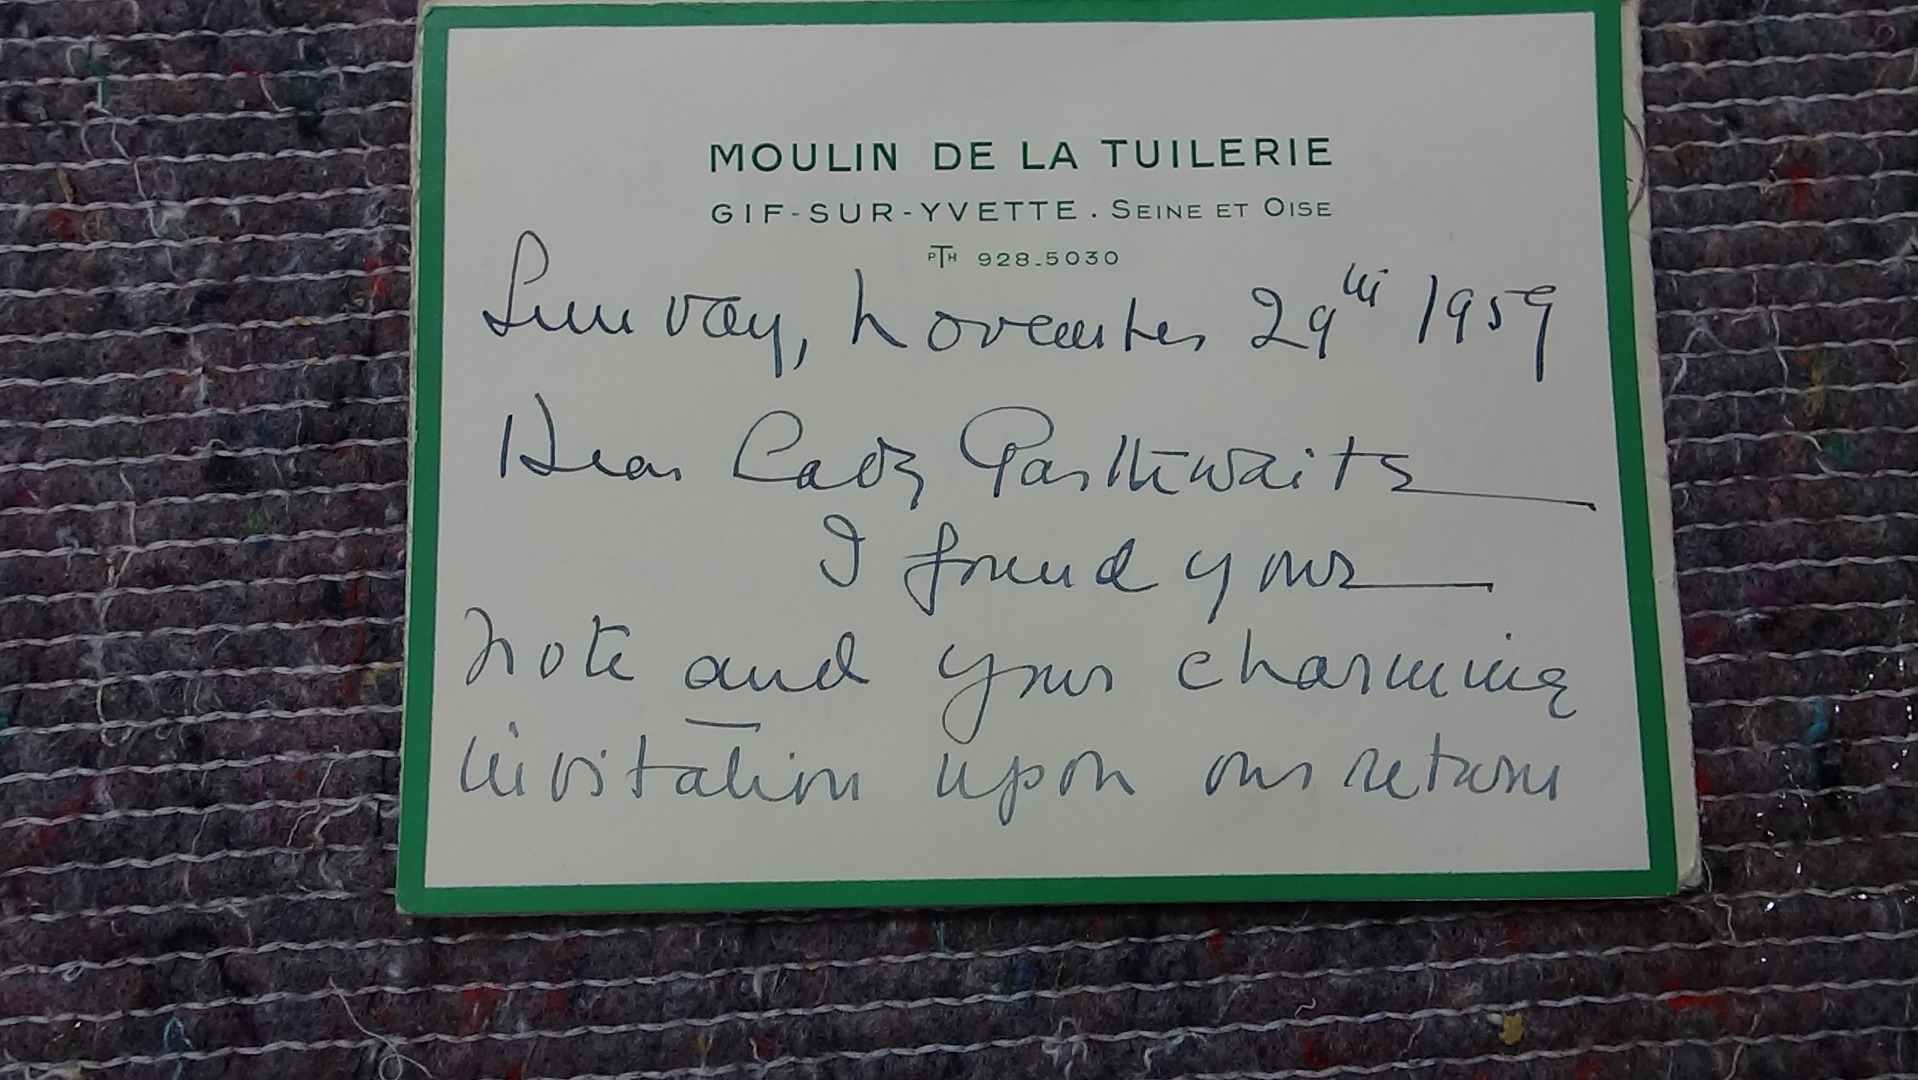 MOULIN DE LA TUILERIE
GIF-SUR-YVETTE. SEINE ET OISE
PTH 928-5030
Sunday, November 29th 1959
Dear Lady Garthwaite
I found your
note and your charming
invitation upon our return